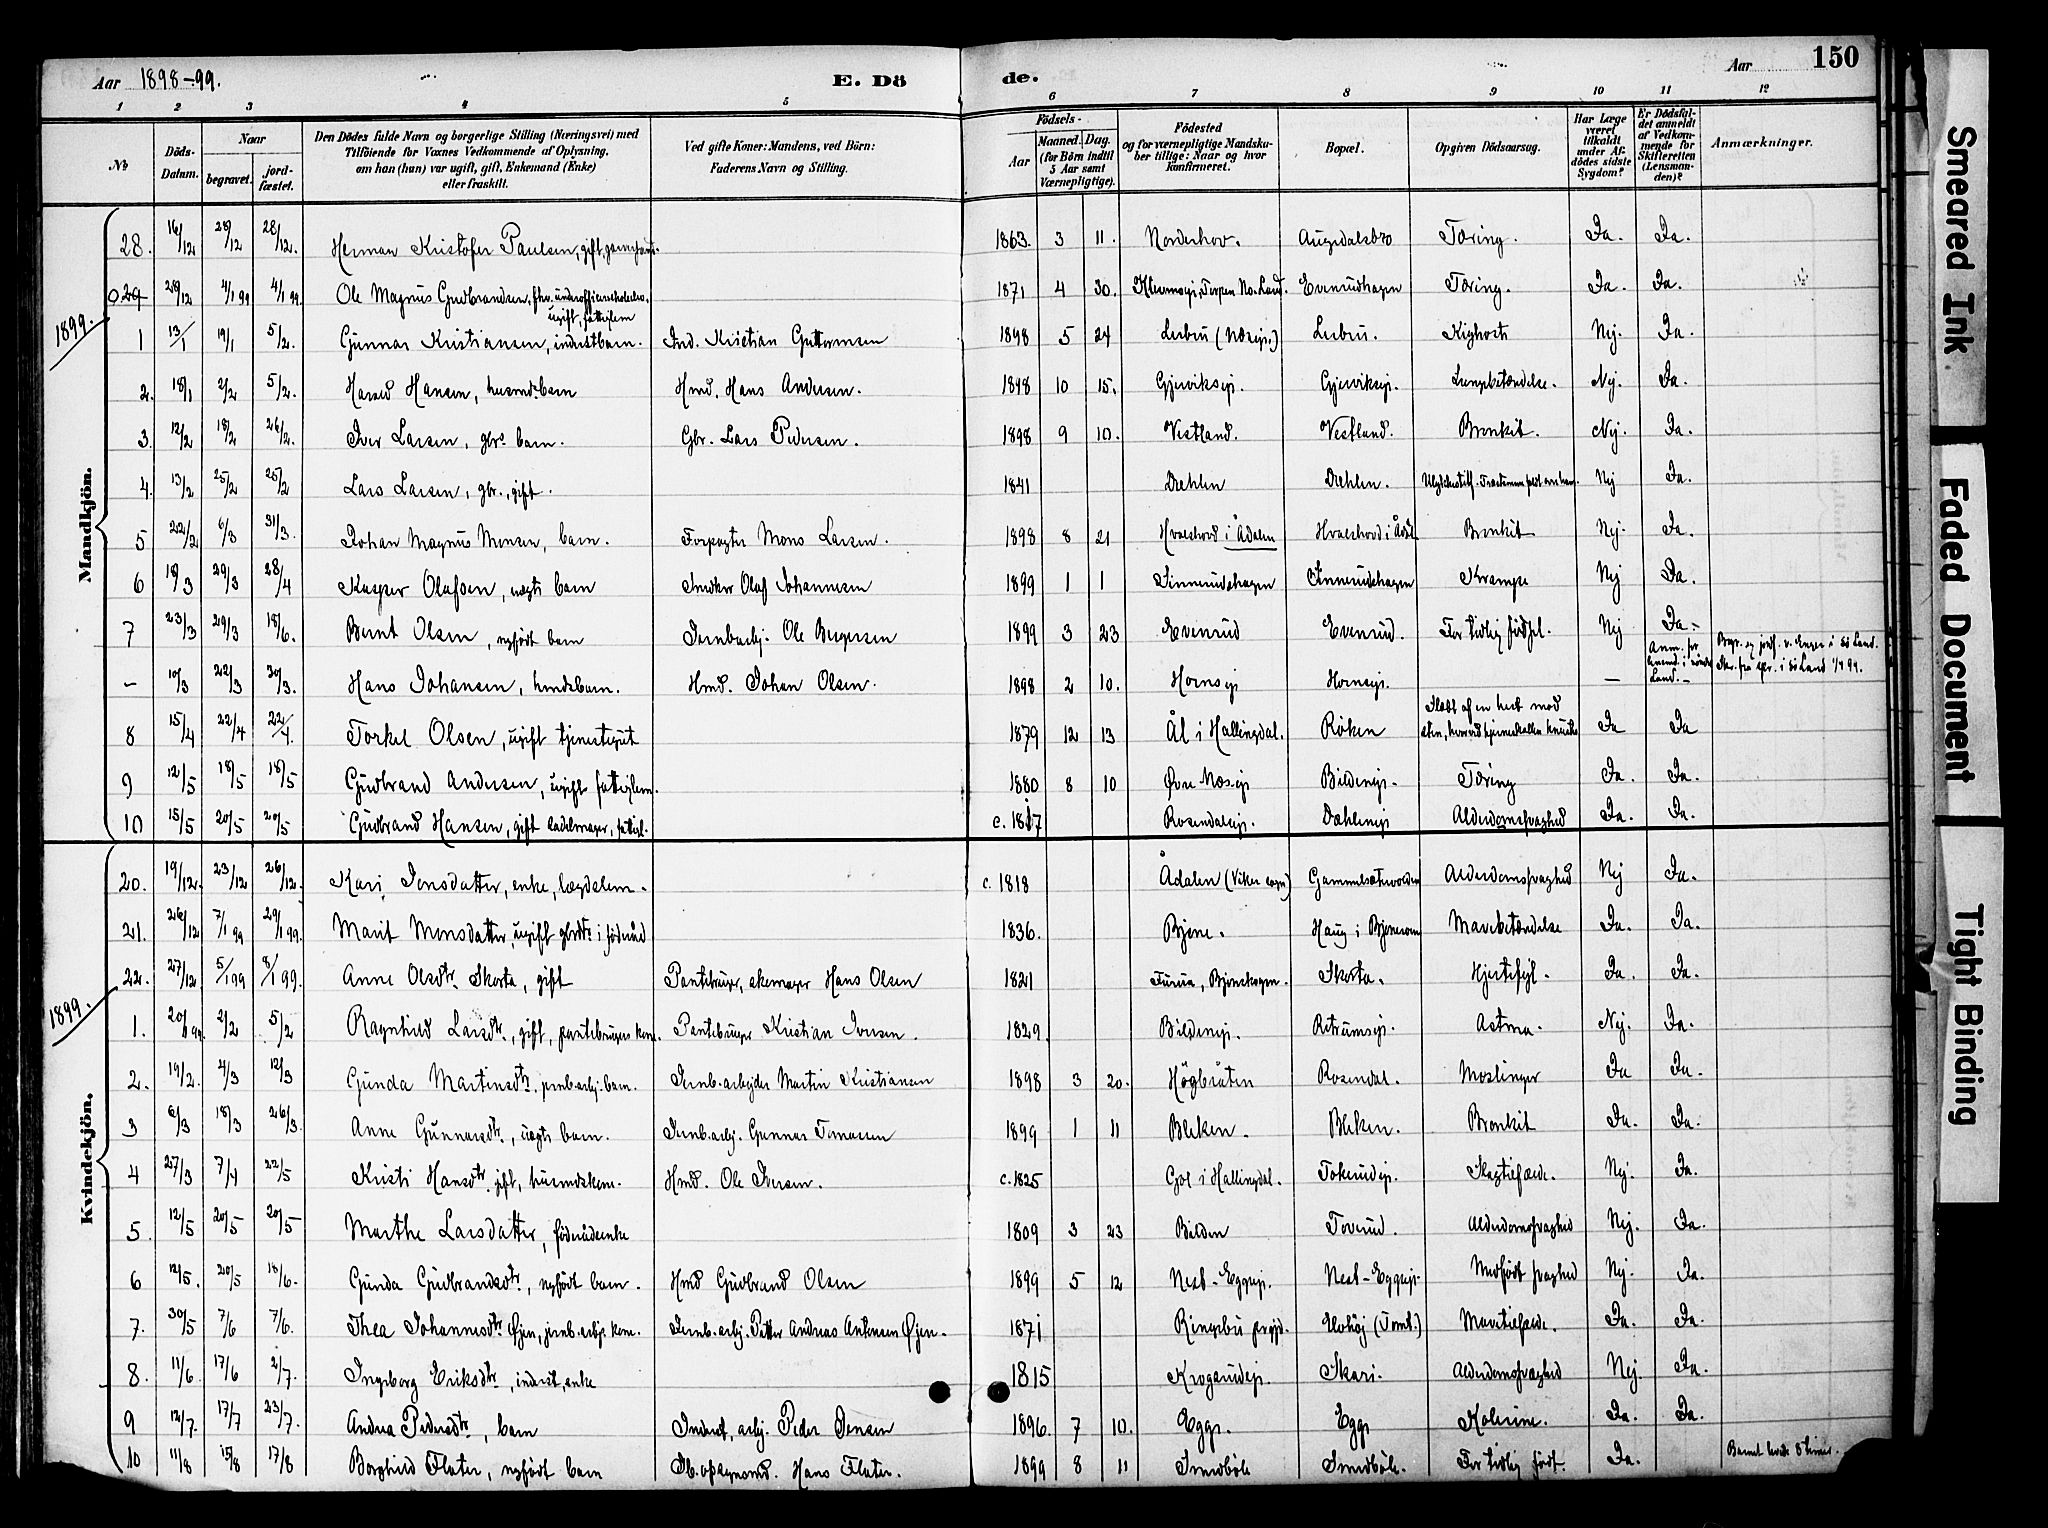 Aar 1898-99. E. Dö de. Aar 150
1 2 3 4 5 6 7 8 9 10 11 12
No
Döds-Datum.
Naar
begravet. jordfæstet.
Den Dödes fulde Navn og borgerlige Stilling (Næringsvei) med
Tilföiende for Voxnes Vedkommende af Oplysning,
om han (hun) var ugift, gift, Enkemand (Enke)
eller fraskilt.
Ved gifte Koner: Mandens, ved Börn:
Faderens Navn og Stilling.
Födsels-
Aar Maaned. Dag.
(for Börn indtil 5 Aar samt Værnepligtige).
Födested
og for værnepligtige Mandskaber tillige: Naar og hvor konfirmeret.
Bopæl.
Opgiven Dödsaarsag.
Har Læge været tilkaldt under Afdödes sidste Sygdom?
Er Dödsfaldet anmeldt af Vedkommende for Skifteretten (Lensmanden)?
Anmærkninger.
Mandkjön.
28. 16/12 28/12 28/12. Herman Kristofer Paulsen, gift 1863. 3 11. Norderhov. Augedalsbro Tæring. Ja. Ja.
29 28/12 4/1 99 4/1 99 Ole Magnus Gudbrandsen, ugift, fattiglem 1871 4 30. Evenrudhagen Tæring. Ja. Ja.
1899.
1 13/1 19/1 5/2. Gunnar Kristiansen, inderstbarn. Ind. Kristian Guttormsen 1898 5 24 Lerbru Lerbru. Kighoste Nej. Ja.
2. 18/1 2/2 5/2. Harald Hansen, husmds. barn Hmd. Hans Andersen. 1898 10 15. Gjerviksejr. Gjerviksejr. Lungebetændelse. Nej. Ja.
3. 12/2 18/2 26/2. Iver Larsen, gbrs. barn. Gbr. Lars Pedersen. 1898 9 10. Vestland. Vestland. Bronkit. Nej. Ja.
4. 13/2 25/2 25/2 Lars Larsen, gbr., gift. 1841 Dæhlen Dæhlen. Nej Ja.
5 22/2 6/3 31/3. Johan Magnus Monsen, barn. Forpagter Mons Larsen. 1898 8 21 Hvalshovd i Ådalen Hvalshovd i Ådal. Bronkit Nej. Ja.
6 18/3 29/3 28/4 Kasper Olafsen, uægte barn Snedker Olaf Johannesen 1899 1 1 Sinnerudhagen Sinnerudshagen Krampe Nej Ja.
7 23/3 29/3 18/6. Bernt Olsen, nyfödt barn Jernbarbj. Ole Bergersen 1899 3 23 Evenrud Evenrud. For tidlig födsel. Nej Ja.
- 10/3 22/3 30/3. Hans Johansen, hmdsbarn. Hmd. Johan Olsen. 1898 2 10. Hornsejr Hornsejr. — Anm. for Land.-
8 15/4 22/4 22/4. Torkel Olsen, ugift tjenestegut 1879 12 13 Ål i Hallingdal. Röken Slået af en hest mod sten, hvorved hjerneskallen knustes Ja Ja
9 12/5 18/5 18/5 Gudbrand Andersen, ugift fattiglem. 1880 8 10 Øvre Næsejr Bildenejr. Tæring Ja. Ja.
10 15/5 20/5 20/5 Gudbrand Hansen, gift sadelmager, fattigl. c. 1817 Rosendalsejr. Dæhlenejr Alderdomssvaghed Ja. Ja.
Kvindekjön.
20. 19/12. 23/12 26/12. Kari Jensdatter, enke, lægdelem. c. 1818 Ådalen (Viker sogn) Gammelsætervolden Alderdomssvaghed Nej Ja.
21. 26/12 7/1 99 29/1 99. Marit Monsdatter, ugift gbrdtr. i föderåd 1836. Bjone. Haug i Bjoneroen Mavebetændelse Ja. Ja.
22. 27/12 5/1 99 8/1 99. Anne Olsdtr. Skorta, gift Pantebruger, skomager Hans Olsen 1821 Furua, Bjoneskogen. Skorta. Hjertefejl. Ja. Ja.
1899.
1. 20/1 99. 2/2 5/2 Ragnhild Larsdtr., gift, pantebrugers kone. Pantebruger Kristian Iversen. 1829. Bildenejr. Retrumsejr. Astma. Nej. Ja.
2. 19/2. 4/3 12/3 Gunda Martinsdtr. jernb.arbj. barn. Jernb.arbejder Martin Kristiansen 1898 3 20. Högbråten Rosendal. Meslinger Ja Ja.
3 6/3 18/3 26/3. Anne Gunnarsdtr., uægte barn. Jernb.arbj. Gunnar Tomasen 1899 1 11 Bleken. Bleken. Bronkit Ja. Ja.
4 27/3 7/4 22/5 Kristi Hansdtr. gift, husmdskone. Hmd. Ole Iversen. c. 1825 Gol i Hallingdal. Tokerudejr. Nej. Ja.
5. 12/5 20/5 20/5 Marthe Larsdatter, föderådsenke 1809 3 23 Bilden Torerud. Alderdomssvaghed Nej. Ja.
6 12/5. 20/5 18/6. Gunda Gudbrandsdtr., nyfödt barn. Hmd Gudbrand Olsen 1899 5 12 Nest-Eggejr. Nest-Eggejr. Medfödt svaghed Nej. Ja.
7. 30/5 7/6 7/6. Thea Johannesdtr. Øjen, jernb.arbjs. kone. Jernb.arbj. Petter Andreas Antonsen Øjen. 1871 Ringebu prgjd. Elvhöj (Tomt.) Ja. Ja.
8. 11/6 17/6 2/7. Ingeborg Eriksdtr., inderst, enke 1815 Krogerudejr. Skari. Alderdomssvaghed Nej. Ja.
9 12/7. 17/7 23/7. Andrea Pedersdtr., barn Inderst, arbj. Peder Jensen 1896. 7 10. Egge. Egge Kolerine. Ja. Ja.
10 11/8 15/8 17/8 Borghild Flater, nyfödt barn Jb.opsynsmd. Hans Flater. 1899 8 11 Smedböle Smedböle. For tidlig födt. Ja. Barnet levde 8 timer.
Smeared Ink
Faded Document
Tight Binding